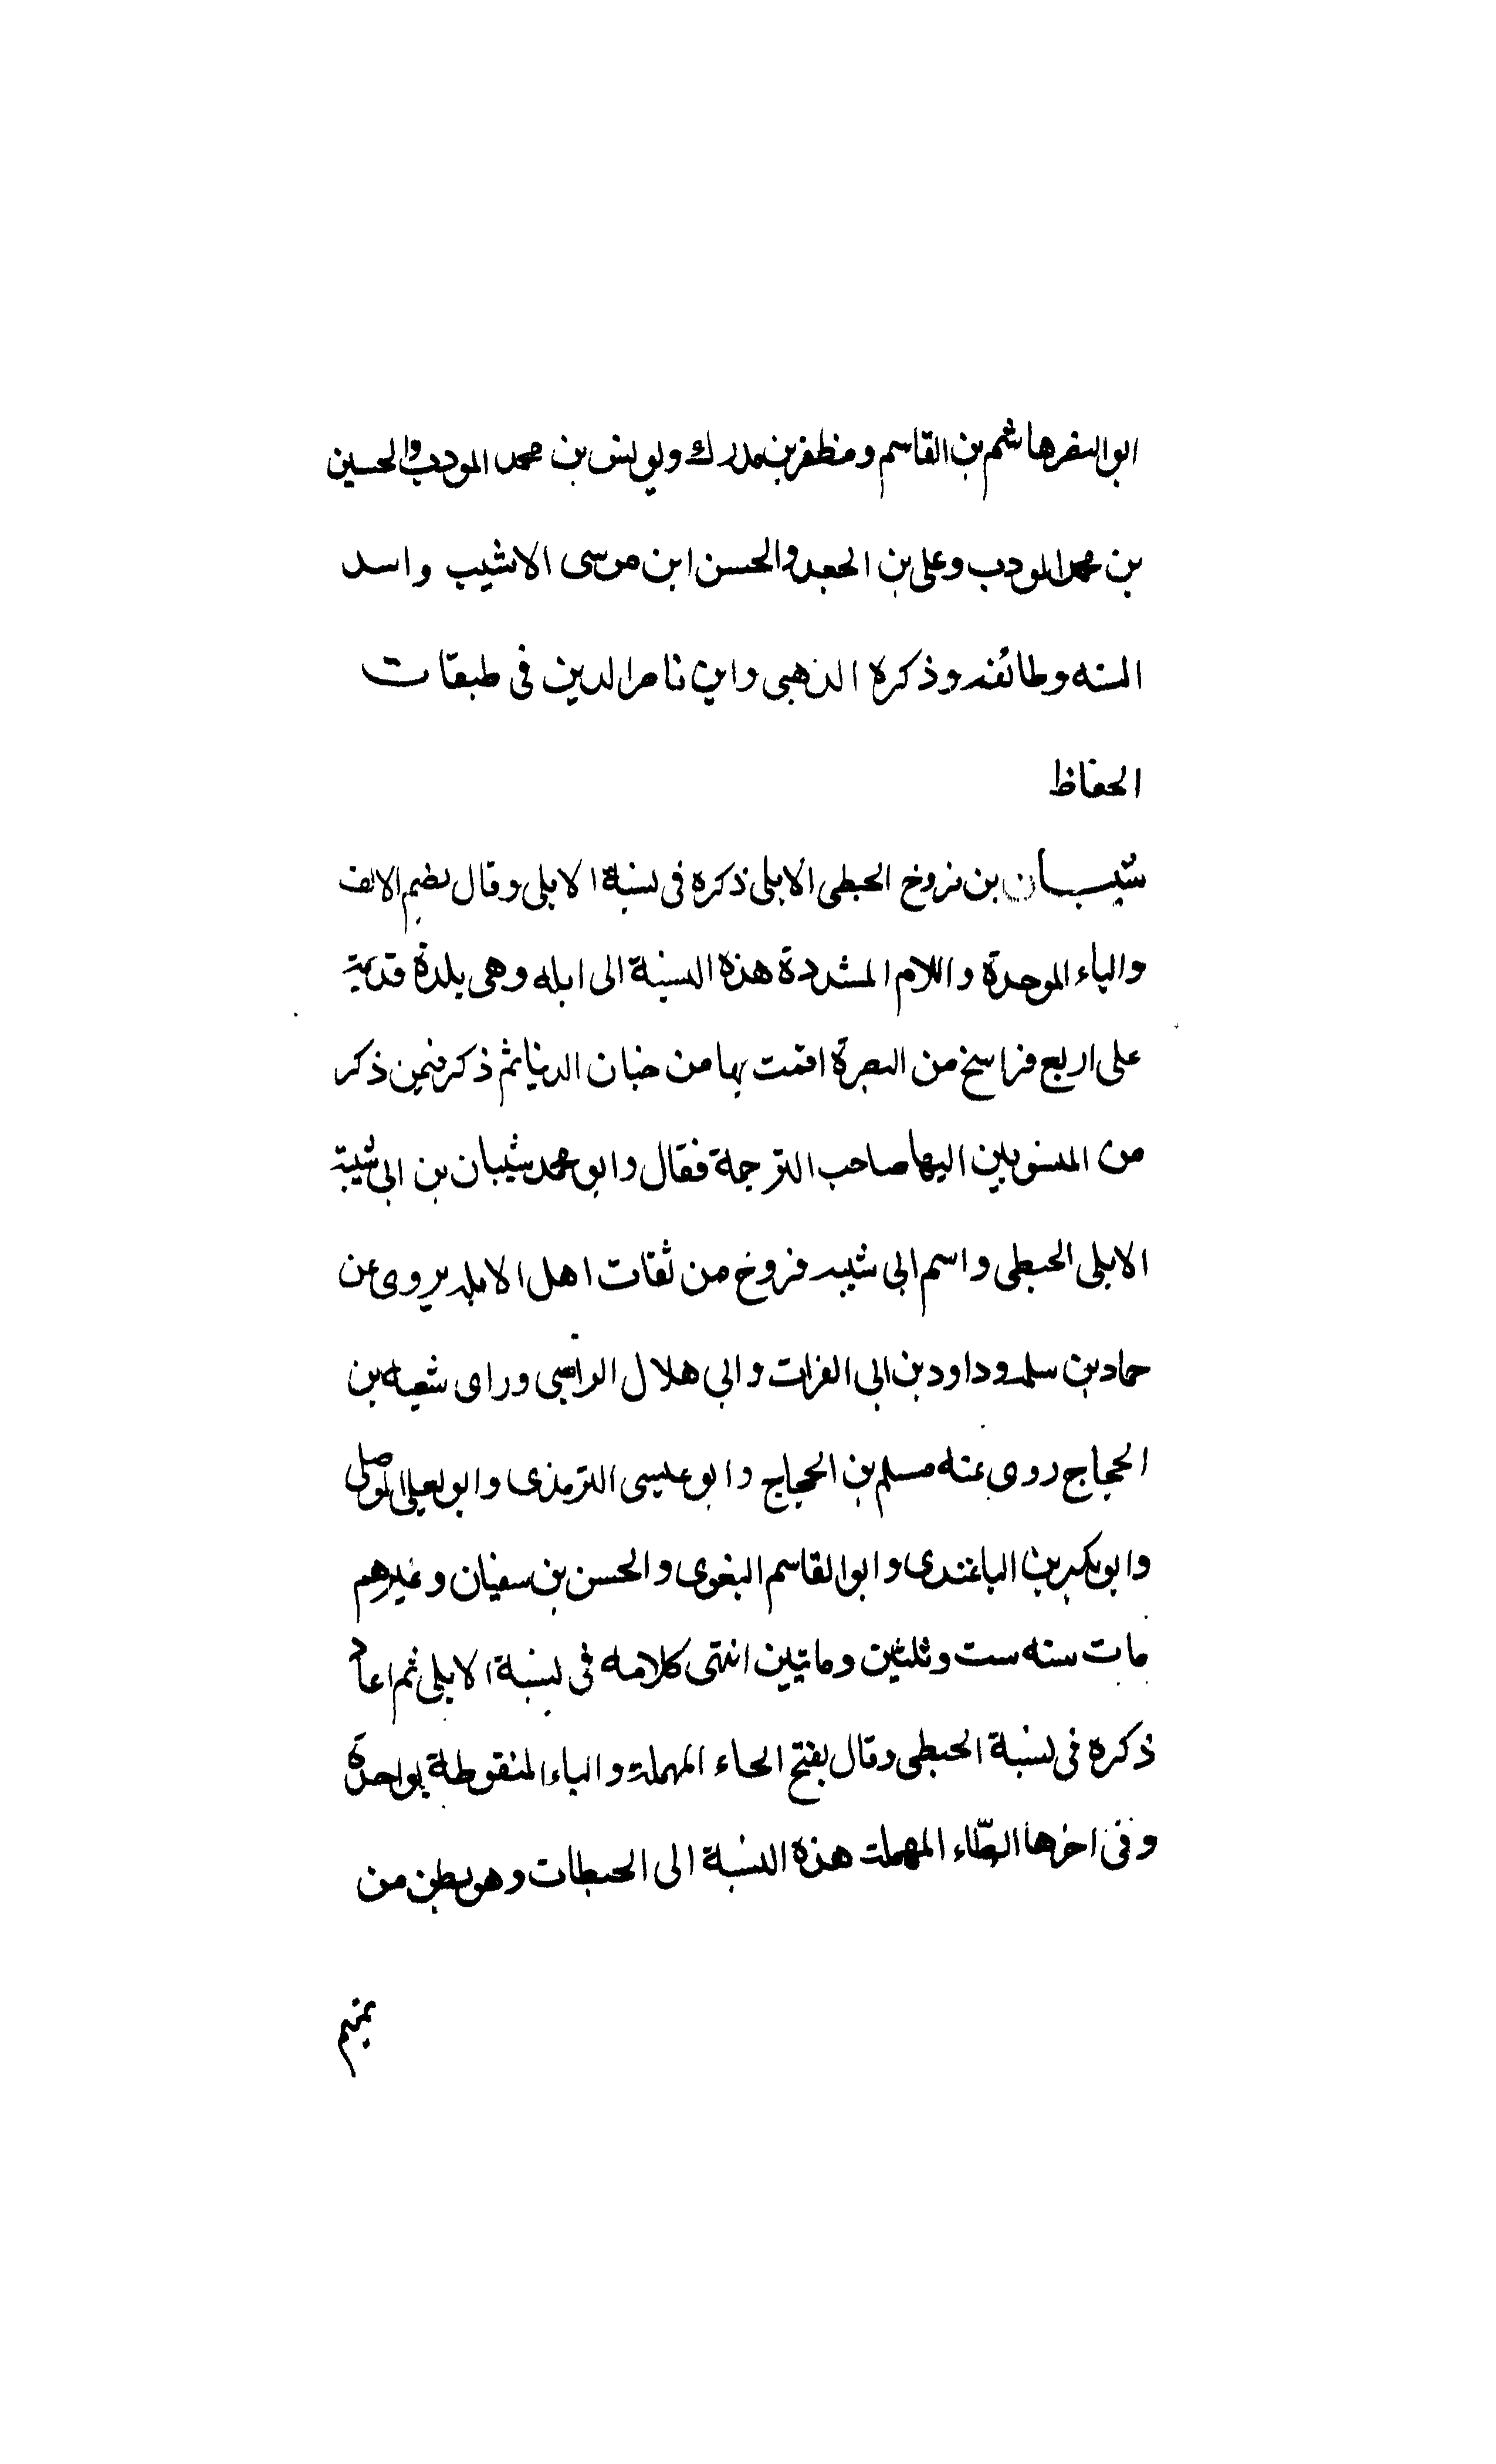 ابو النضر هاشم بن القاسم ومظفر بن مدرك ويونس بن محمد المودب والحسين
بن محمد المودب وعلى بن الجعد والحسن ابن موسى الاشيب واسد
السنه وطائفه وذكره الذهبى وابن ناصر الدين فى طبقات
الحفاظ
شيبان بن فروخ الحبطى الابلى ذكره فى نسبة الابلى وقال بضم الالف
والباء الموحدة واللام المشددة هذه النسبة الى ابله وهى بلدة قديمة
على اربع فراسخ من البصرة اقمت بها من جنان الدنيا ثم ذكر فيمن ذكر
من المنسوبين اليها صاحب الترجمة فقال وابو محمد شيبان بن ابى شيبة
الابلى الحبطى واسم ابى شيبه فروخ من ثقات اهل الابله يروى عن
حماد بن سلمه وداود بن ابى الفرات وابى هلال الراسبى وراى شعبه بن
الحجاج روى عنه مسلم بن الحجاج وابو عيسى الترمذى وابو يعلى الموصلى
وابو بكر بن الباغندى وابو القاسم البغوى والحسن بن سفيان وغيرهم
مات سنه ست وثلثين وماتين انتهى كلامه فى نسبة الابلى ثم اعاد
ذكره فى نسبة الحبطى وقال بفتح الحاء المهملة والباء المنقوطة بواحدة
وفى اخرها الطاء المهملة هذه النسبة الى الحبطات وهو بطن من
تميم